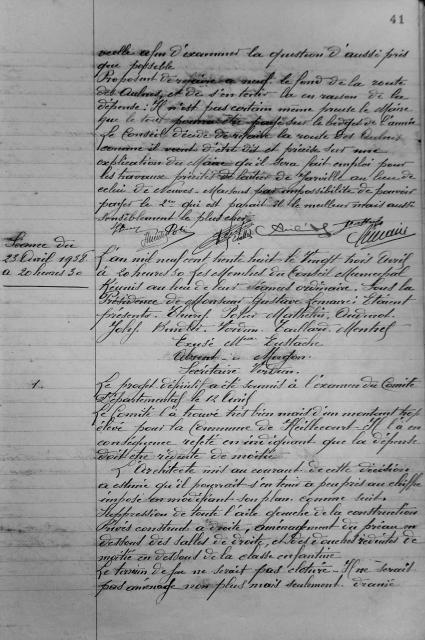 41
velle afin d'examiner la question d'aussi près
que possible
Proposant de refaire à neuf le fond de la route
des et de s'en tenir là en raison de la
dépense : Il n'est pas certain même precise le Maire
que le tout pourra être payé sur le budget de l'année
Le Conseil décide de refaire la route des
comme il vient d'être dit et précise sur une
explication du Maire qu'il sera fait emploi pour
les travaux précités de laitier de Jarville au lieu de
celui de Neuves-Maisons par impossibilité de pouvoir
payer le 2me qui est parait il le meilleur mais aussi
sensiblement le plus cher
Séance du
23 Avril 1938
à 20 heures 30
L'an mil neuf cent trente huit le Vingt trois Avril
à 20 heures 30 Les Membres du Conseil Municipal
Réunis au lieu de leur séances ordinaire. Sous la
Présidence de Monsieur Gustave : Etaient
présents.
Joseph
Excusé Mr Eustache
Absent
Secrétaire
1.
Le projet définitif a été soumis à l'examen du Comité
Départemental le 12 Avril
Le Comité l'a trouvé très bien mais d'un montant trop
élevé pour la Commune de Heillecourt - Il l'a en
conséquence rejeté en indiquant que la dépense
doit être réduite de moitié
L'Architecte mis au courant de cette décision
a estimé qu'il pourrait s'en tenir à peu près au chiffre
imposé en modifiant son plan comme suit.
Suppression de toute l'aile gauche de la construction
Privés construits à droite, aménagement du préau en
dessous des salles de droite, et des douches réduites de
moitié en dessous de la classe enfantine
Le terrain de jeu ne serait pas clôturé - Il ne serait
pas aménagé non plus mais seulement drainé